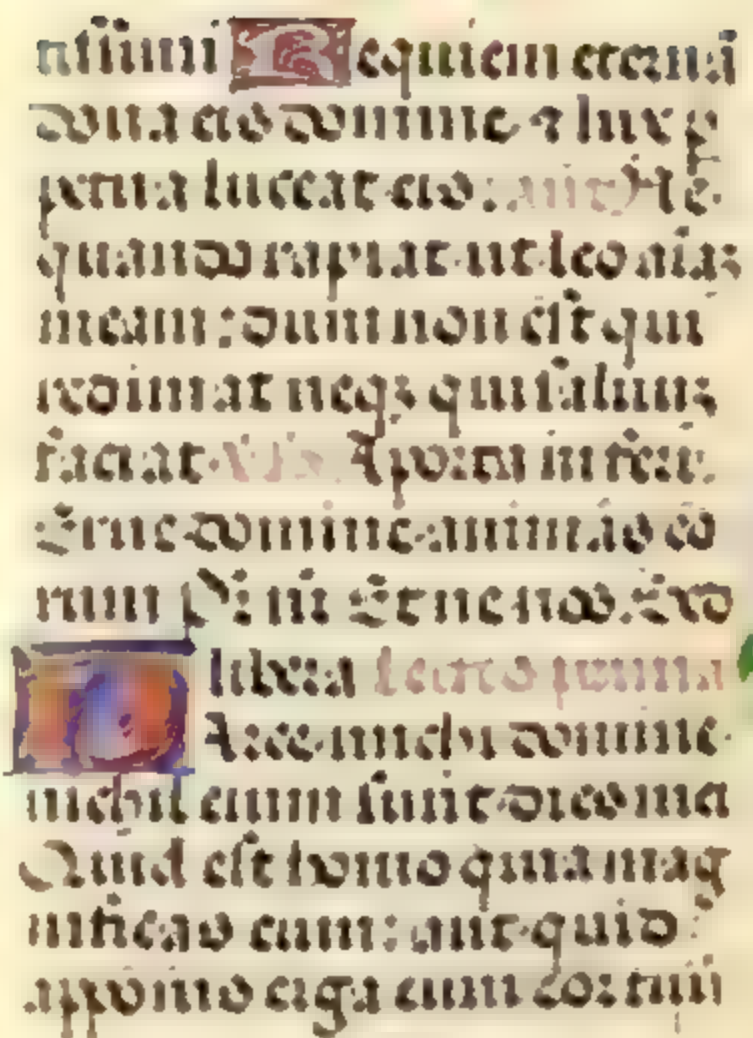 nissimi Requiem eternā
dona eis domine ⁊ lux p̱
petua luceat eis: añt Ne
quando rapiat ut leo aīaꝫ
meam: dum non est qui
redimat neqꝫ qui saluuꝫ
faciat. V̄s. A porta inferi.
Erue domine animas eo
rum P̄r n̄r Et ne nos. Sed
libera Lectio prima
Parce michi domine
nichil enim sunt dies mei
Quid est homo quia mag
nificas eum: aut quid
apponis erga eum cor tuū